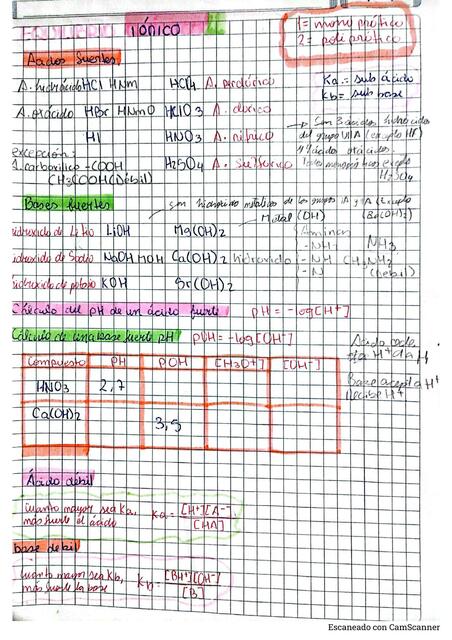 EQUILIBRIO IÓNICO
1= mono prótico
2= poli prótico
Ácidos fuertes
Ka = sub ácido
Kb = sub base
A. hidrácido HCl HnM HClO4 A. perclórico
A. oxiácido HBr HNmO HClO3 A. clórico
HI HNO3 A. nítrico
H2SO4 A. sulfúrico
excepción:
A. carboxílico -COOH
CH3COOH (Débil)
Son 3 ácidos hidrácidos
del grupo VIIA (excepto HF)
4 ácidos oxácidos.
Todos monopróticos excepto
H2SO4
Bases fuertes
Son hidróxidos metálicos de los grupos IA y IIA (Excepto
(Be(OH)2)
Metal (OH)
hidróxido de Litio LiOH Mg(OH)2
hidróxido de Sodio NaOH MOH Ca(OH)2 hidróxido
hidróxido de potasio KOH Sr(OH)2
Aminas
-NH2 NH3
-NH CH3NH2
-N (Débil)
Cálculo del pH de un ácido fuerte pH = -log[H+]
Cálculo de una base fuerte pH pOH = -log[OH-]
Ácido cede
H+
Base acepta H+
recibe H+
Compuesto PH POH [H3O+] [OH-]
HNO3 2,7
Ca(OH)2 3,5
Ácido débil
Cuanto mayor sea Ka,
más fuerte el ácido
Ka = [H+][A-] / [HA]
base débil
Cuanto mayor sea Kb,
más fuerte la base
Kb = [BH+][OH-] / [B]
Escaneado con CamScanner